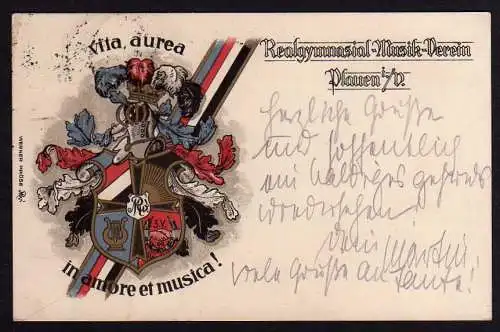 Vita, aurea
in amore et musica!
Realgymnasial-Musik-Verein
Plauen i/V.
WERNER HÖSE
Herzliche Grüße
und hoffentlich
ein baldiges
Wiedersehen!
Dein Martin
Viele Grüße an
Tante!